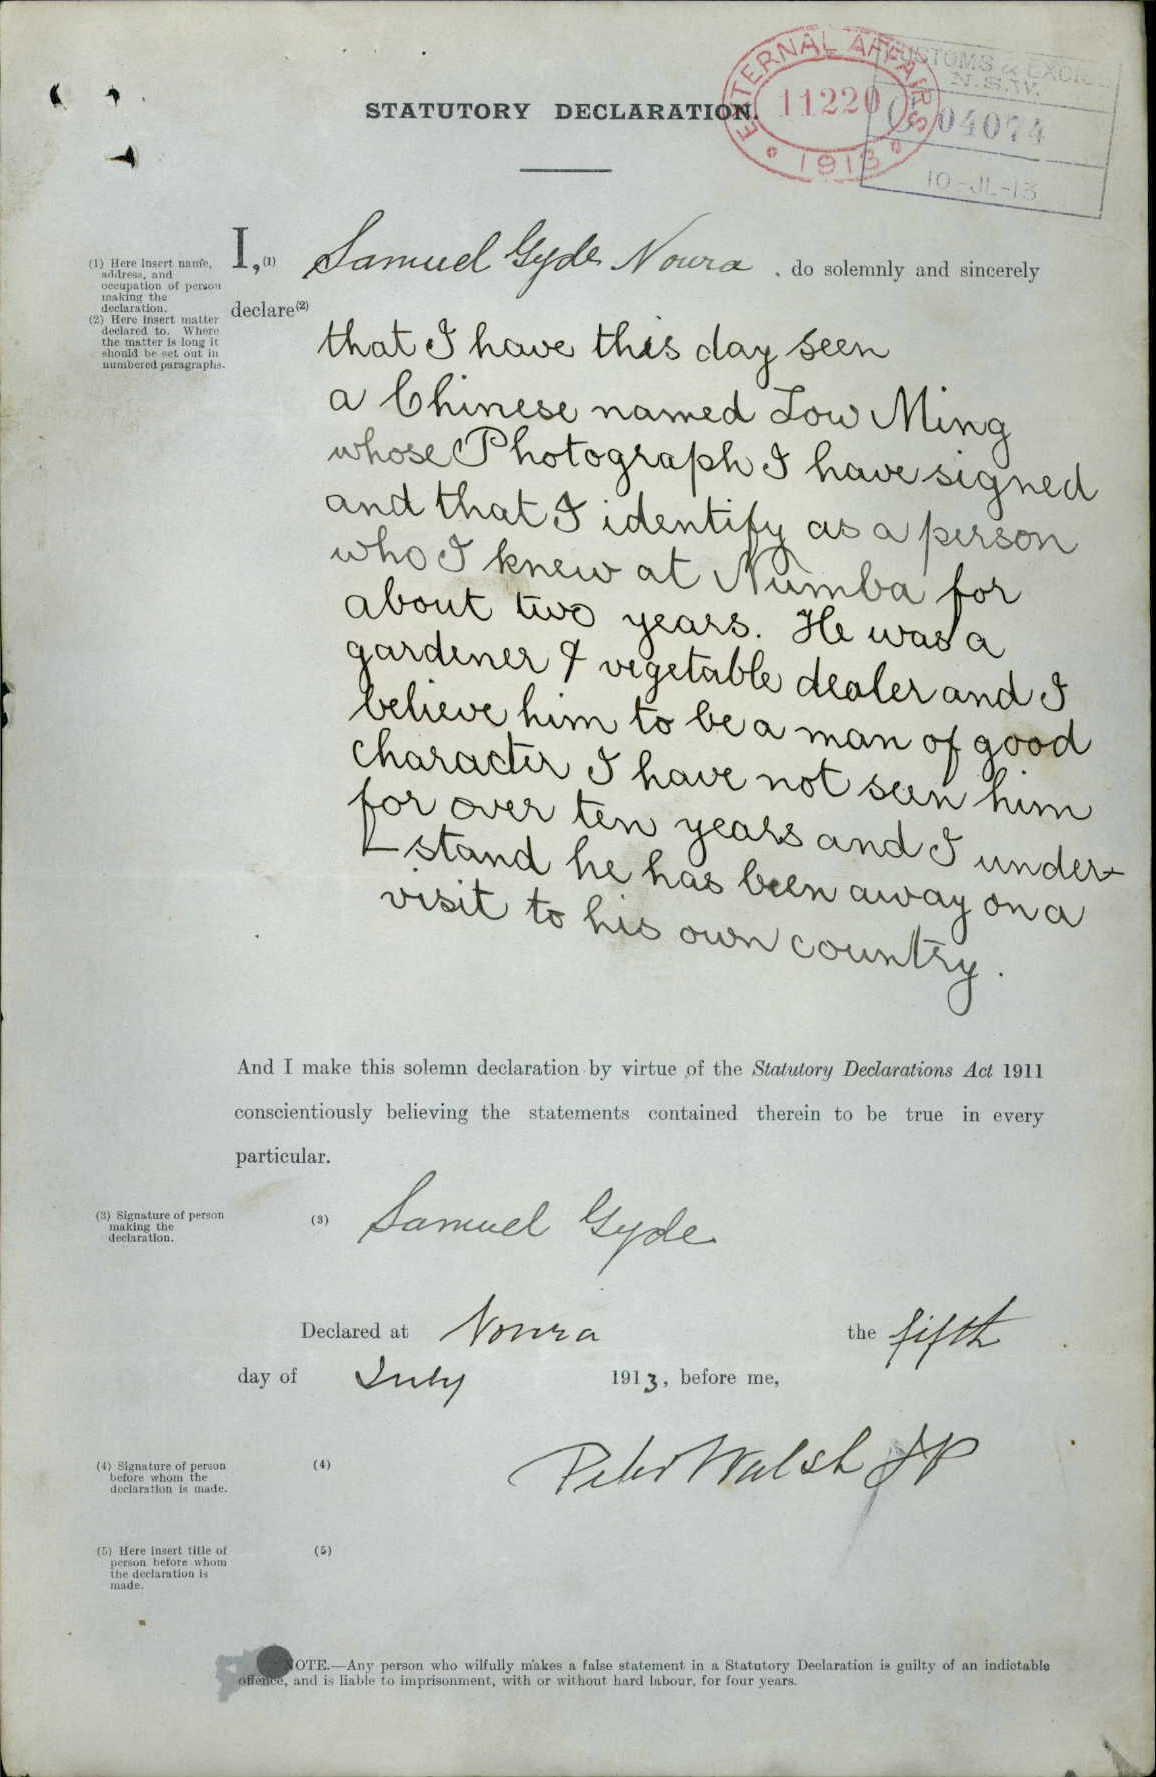 STATUTORY DECLARATION.
EXTERNAL AFFAIRS
11220
1913
CUSTOMS & EXCISE
N.S.W.
04074
10-JL-13
(1) Here insert name,
address, and
occupation of person
making the
declaration.
(2) Here insert matter
declared to. Where
the matter is long it
should be set out in
numbered paragraphs.
I,(1) Samuel Gyde Nowra, do solemnly and sincerely
declare(2)
that I have this day seen
a Chinese named Low Ming
whose Photograph I have signed
and that I identify as a person
who I knew at Numba for
about two years. He was a
gardener & vegetable dealer and I
believe him to be a man of good
character I have not seen him
for over ten years and I under-
-stand he has been away on a
visit to his own country.
And I make this solemn declaration by virtue of the Statutory Declarations Act 1911
conscientiously believing the statements contained therein to be true in every
particular.
(3) Signature of person
making the
declaration.
(3) Samuel Gyde
Declared at Nowra the fifth
day of July 1913, before me,
(4) Signature of person
before whom the
declaration is made.
(4) Peter Walsh JP
(5) Here insert title of
person before whom
the declaration is
made.
(5)
NOTE.—Any person who wilfully makes a false statement in a Statutory Declaration is guilty of an indictable
offence, and is liable to imprisonment, with or without hard labour, for four years.